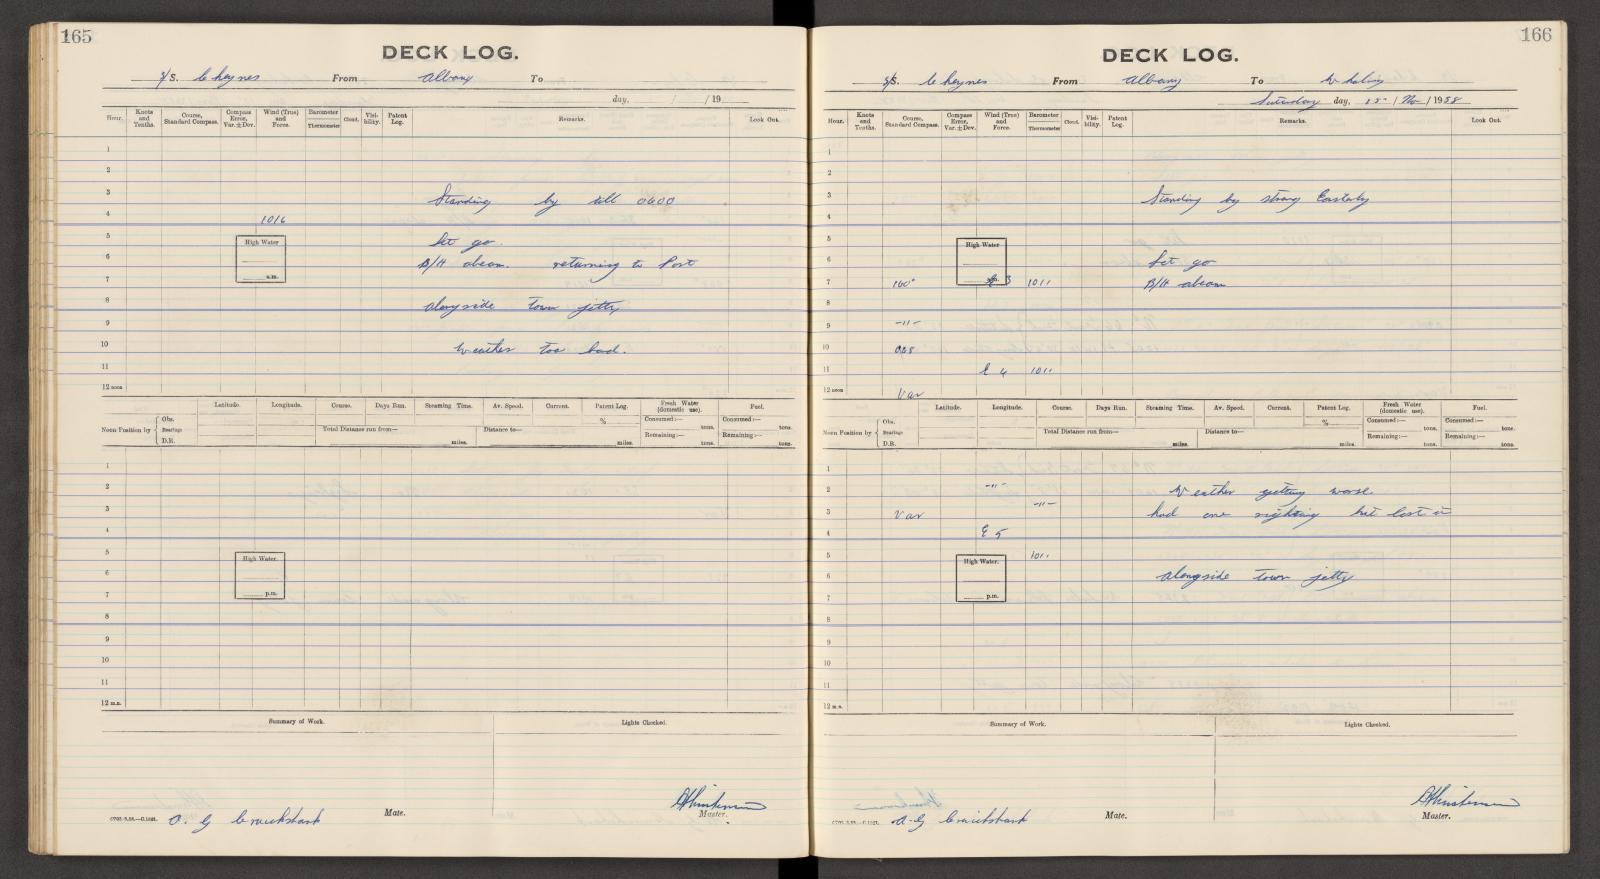 165
DECK LOG.
S/S. Cheynes From Albany To
day, / /19
Hour. Knots and Tenths. Course, Standard Compass. Compass Error, Var. ± Dev. Wind (True) and Force. Barometer Thermometer Cloud. Visibility. Patent Log. Remarks. Look Out.
1
2
3 Standing by till 0600
4 1016
5 High Water Let go.
6 B/H abeam. returning to Port
7 a.m.
8 alongside town jetty
9
10 Weather too bad.
11
12 noon
Latitude. Longitude. Course. Days Run. Steaming Time. Av. Speed. Current. Patent Log. Fresh Water (domestic use). Fuel.
Noon Position by { Obs. Bearings D.R. Total Distance run from— miles. Distance to— miles. % Consumed:— tons. Remaining:— tons. Consumed:— tons. Remaining:— tons.
1
2
3
4
5 High Water.
6
7 p.m.
8
9
10
11
12 m.n.
Summary of Work. Lights Checked.
A. G Cruickshank Mate.
Master.
166
DECK LOG.
S/S. Cheynes From Albany To Whaling
Saturday day, 15th / Nov / 1958
Hour. Knots and Tenths. Course, Standard Compass. Compass Error, Var. ± Dev. Wind (True) and Force. Barometer Thermometer Cloud. Visibility. Patent Log. Remarks. Look Out.
1
2
3 Standing by strong Easterly
4
5 High Water
6 Let go
7 160° E 3 1011 B/H abeam
8
9 -"-
10 068
11 E 4 1011
12 noon Var
Latitude. Longitude. Course. Days Run. Steaming Time. Av. Speed. Current. Patent Log. Fresh Water (domestic use). Fuel.
Noon Position by { Obs. Bearings D.R. Total Distance run from— miles. Distance to— miles. % Consumed:— tons. Remaining:— tons. Consumed:— tons. Remaining:— tons.
1
2 -"- Weather getting worse.
3 Var -"- had one sighting but lost it
4 E 5
5 High Water. 1011
6 alongside town jetty
7 p.m.
8
9
10
11
12 m.n.
Summary of Work. Lights Checked.
A-G Cruickshank Mate.
Master.